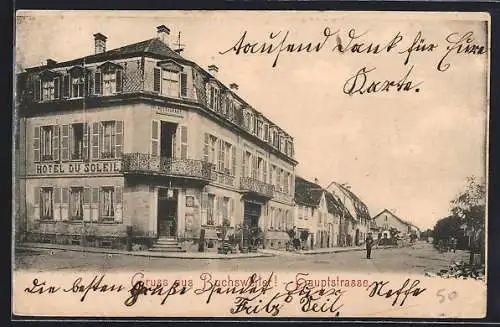 tausend Dank für Eure
Karte.
RESTAURANT
HOTEL DU SOLEIL
Gruss aus Buchsweiler! Hauptstrasse.
Die besten Grüße sendet Euer Neffe
Fritz Veil
50